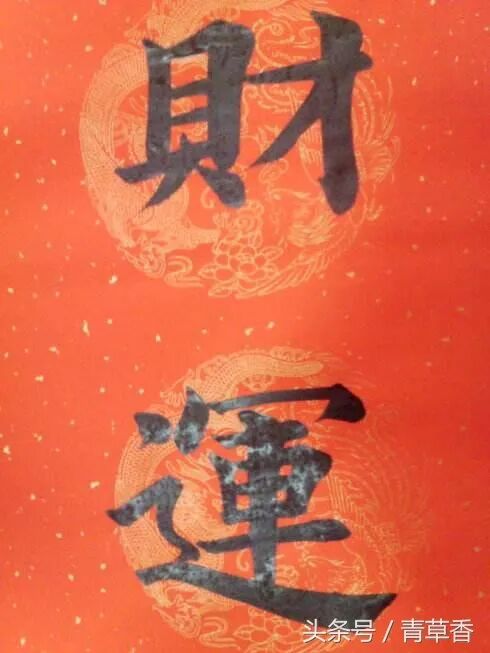 財
運
头条号 / 青草香